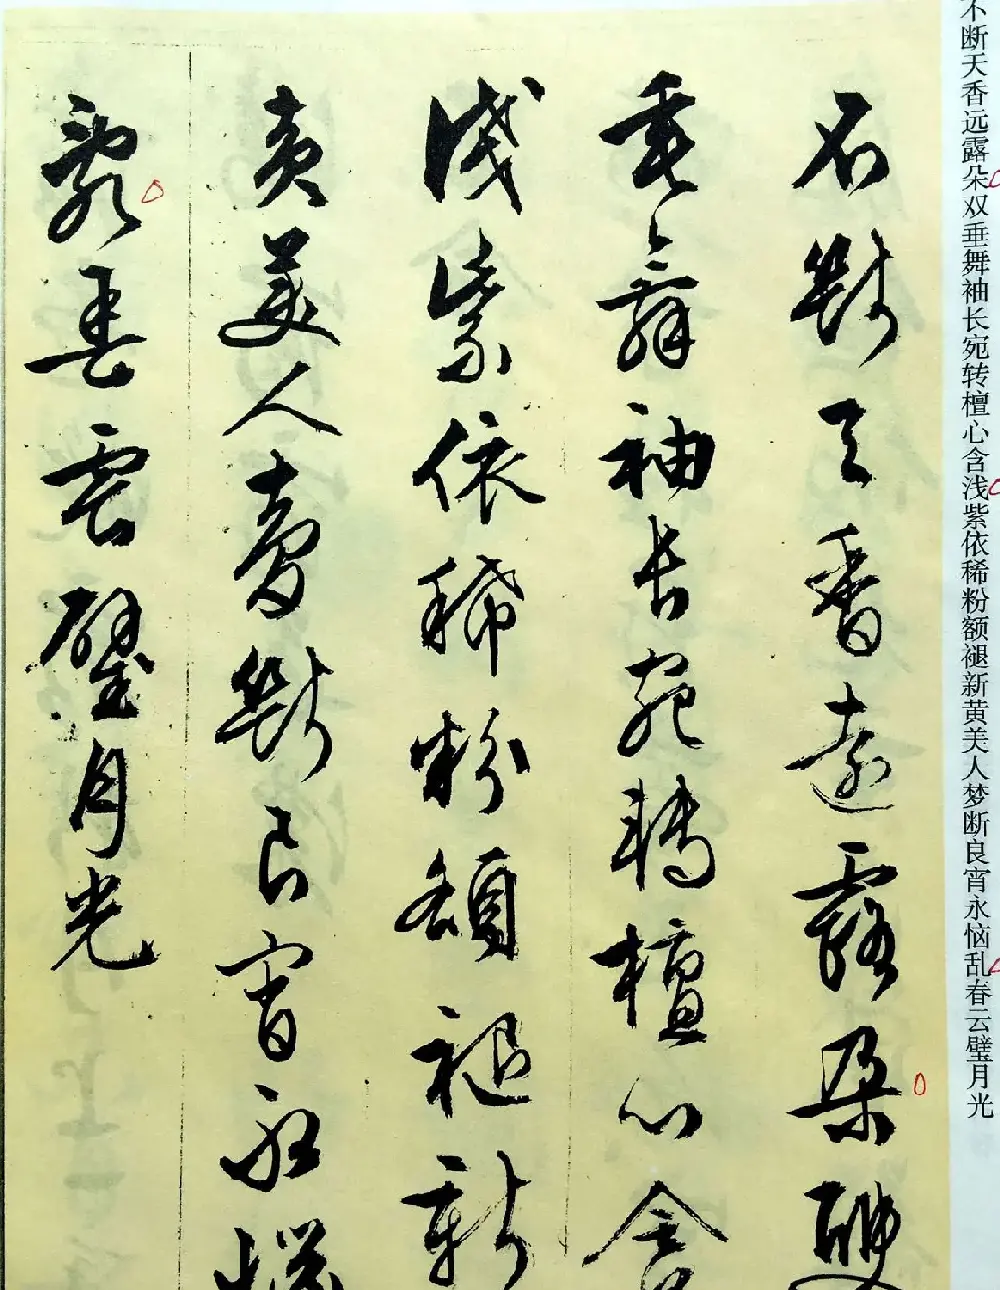 不断天香远露朵双垂舞袖长宛转檀心含浅紫依稀粉额褪新黄美人梦断良宵永恼乱春云璧月光
不斷天香遠露朵雙
垂舞袖長宛轉檀心含
淺紫依稀粉額褪新
黃美人夢斷良宵永惱
亂春雲璧月光